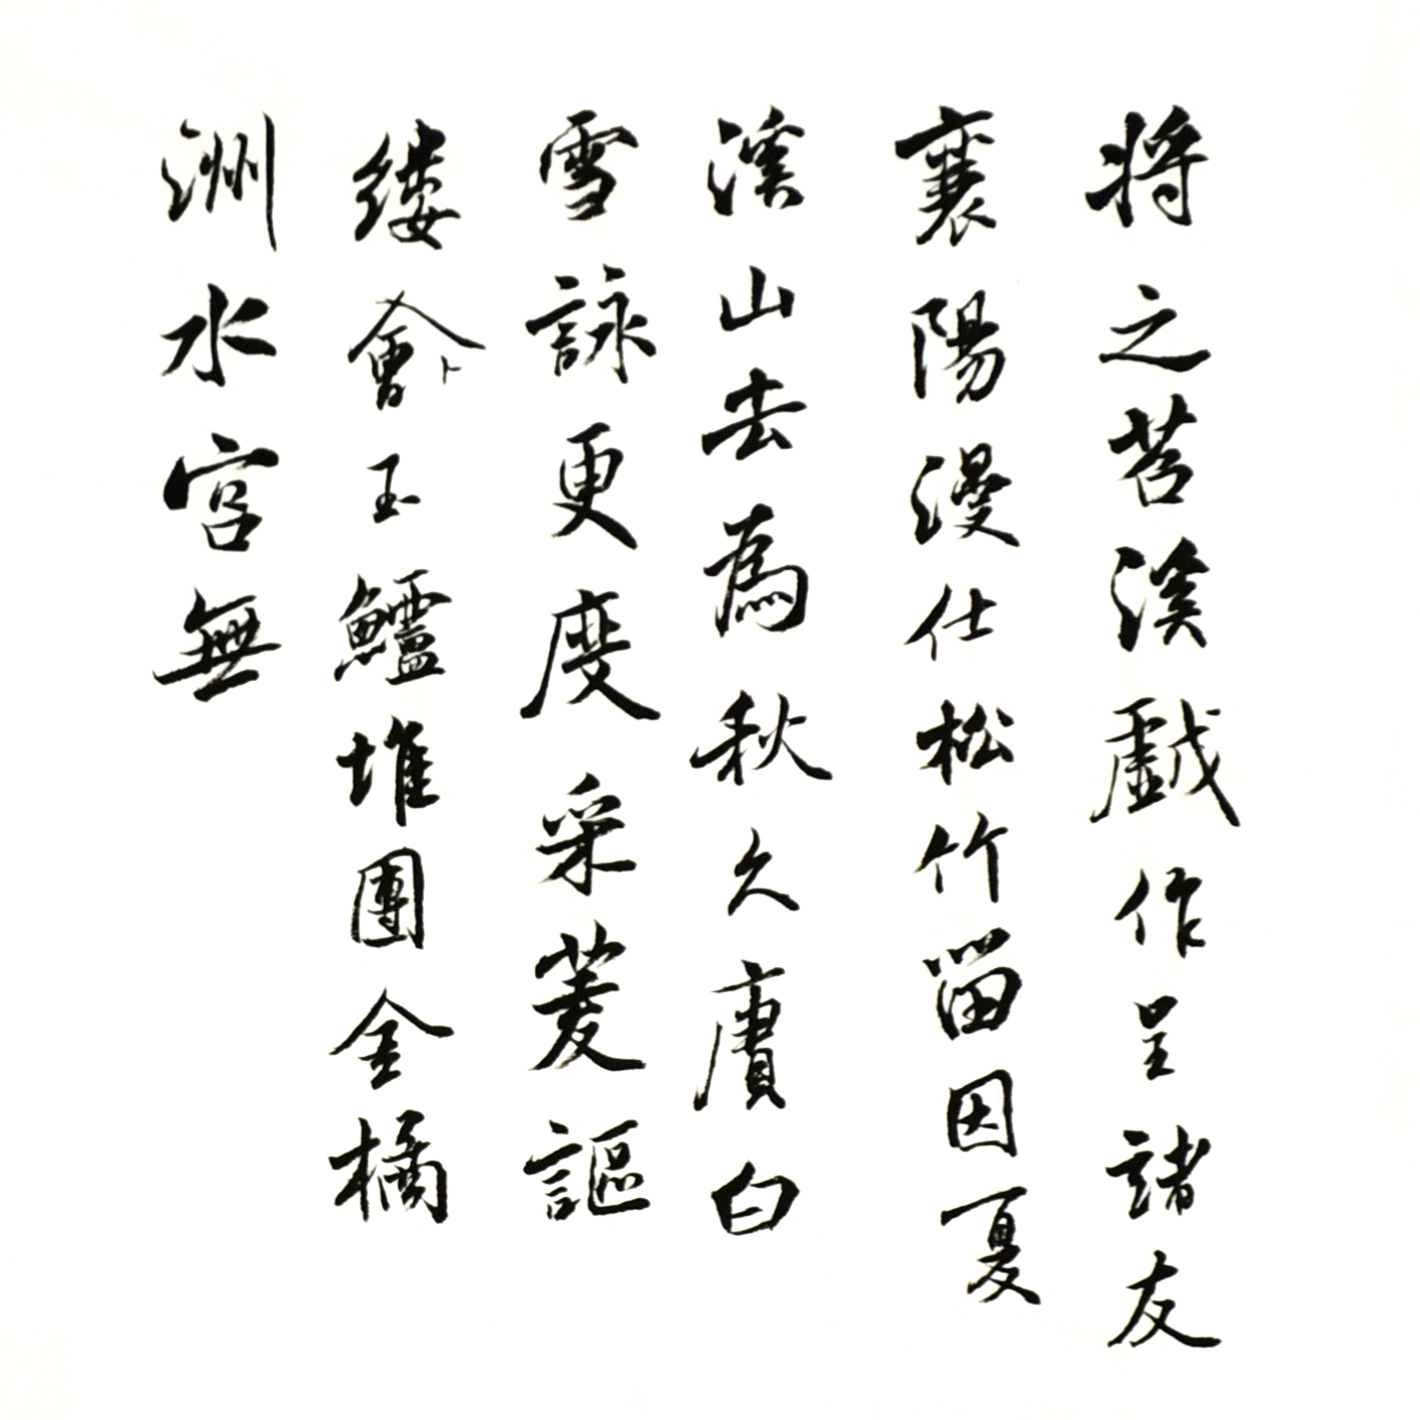 將之苕溪戲作呈諸友
襄陽漫仕松竹留因夏
溪山去為秋久賡白
雪詠更度采菱謳
縷會卜玉鱸堆團金橘
洲水宮無